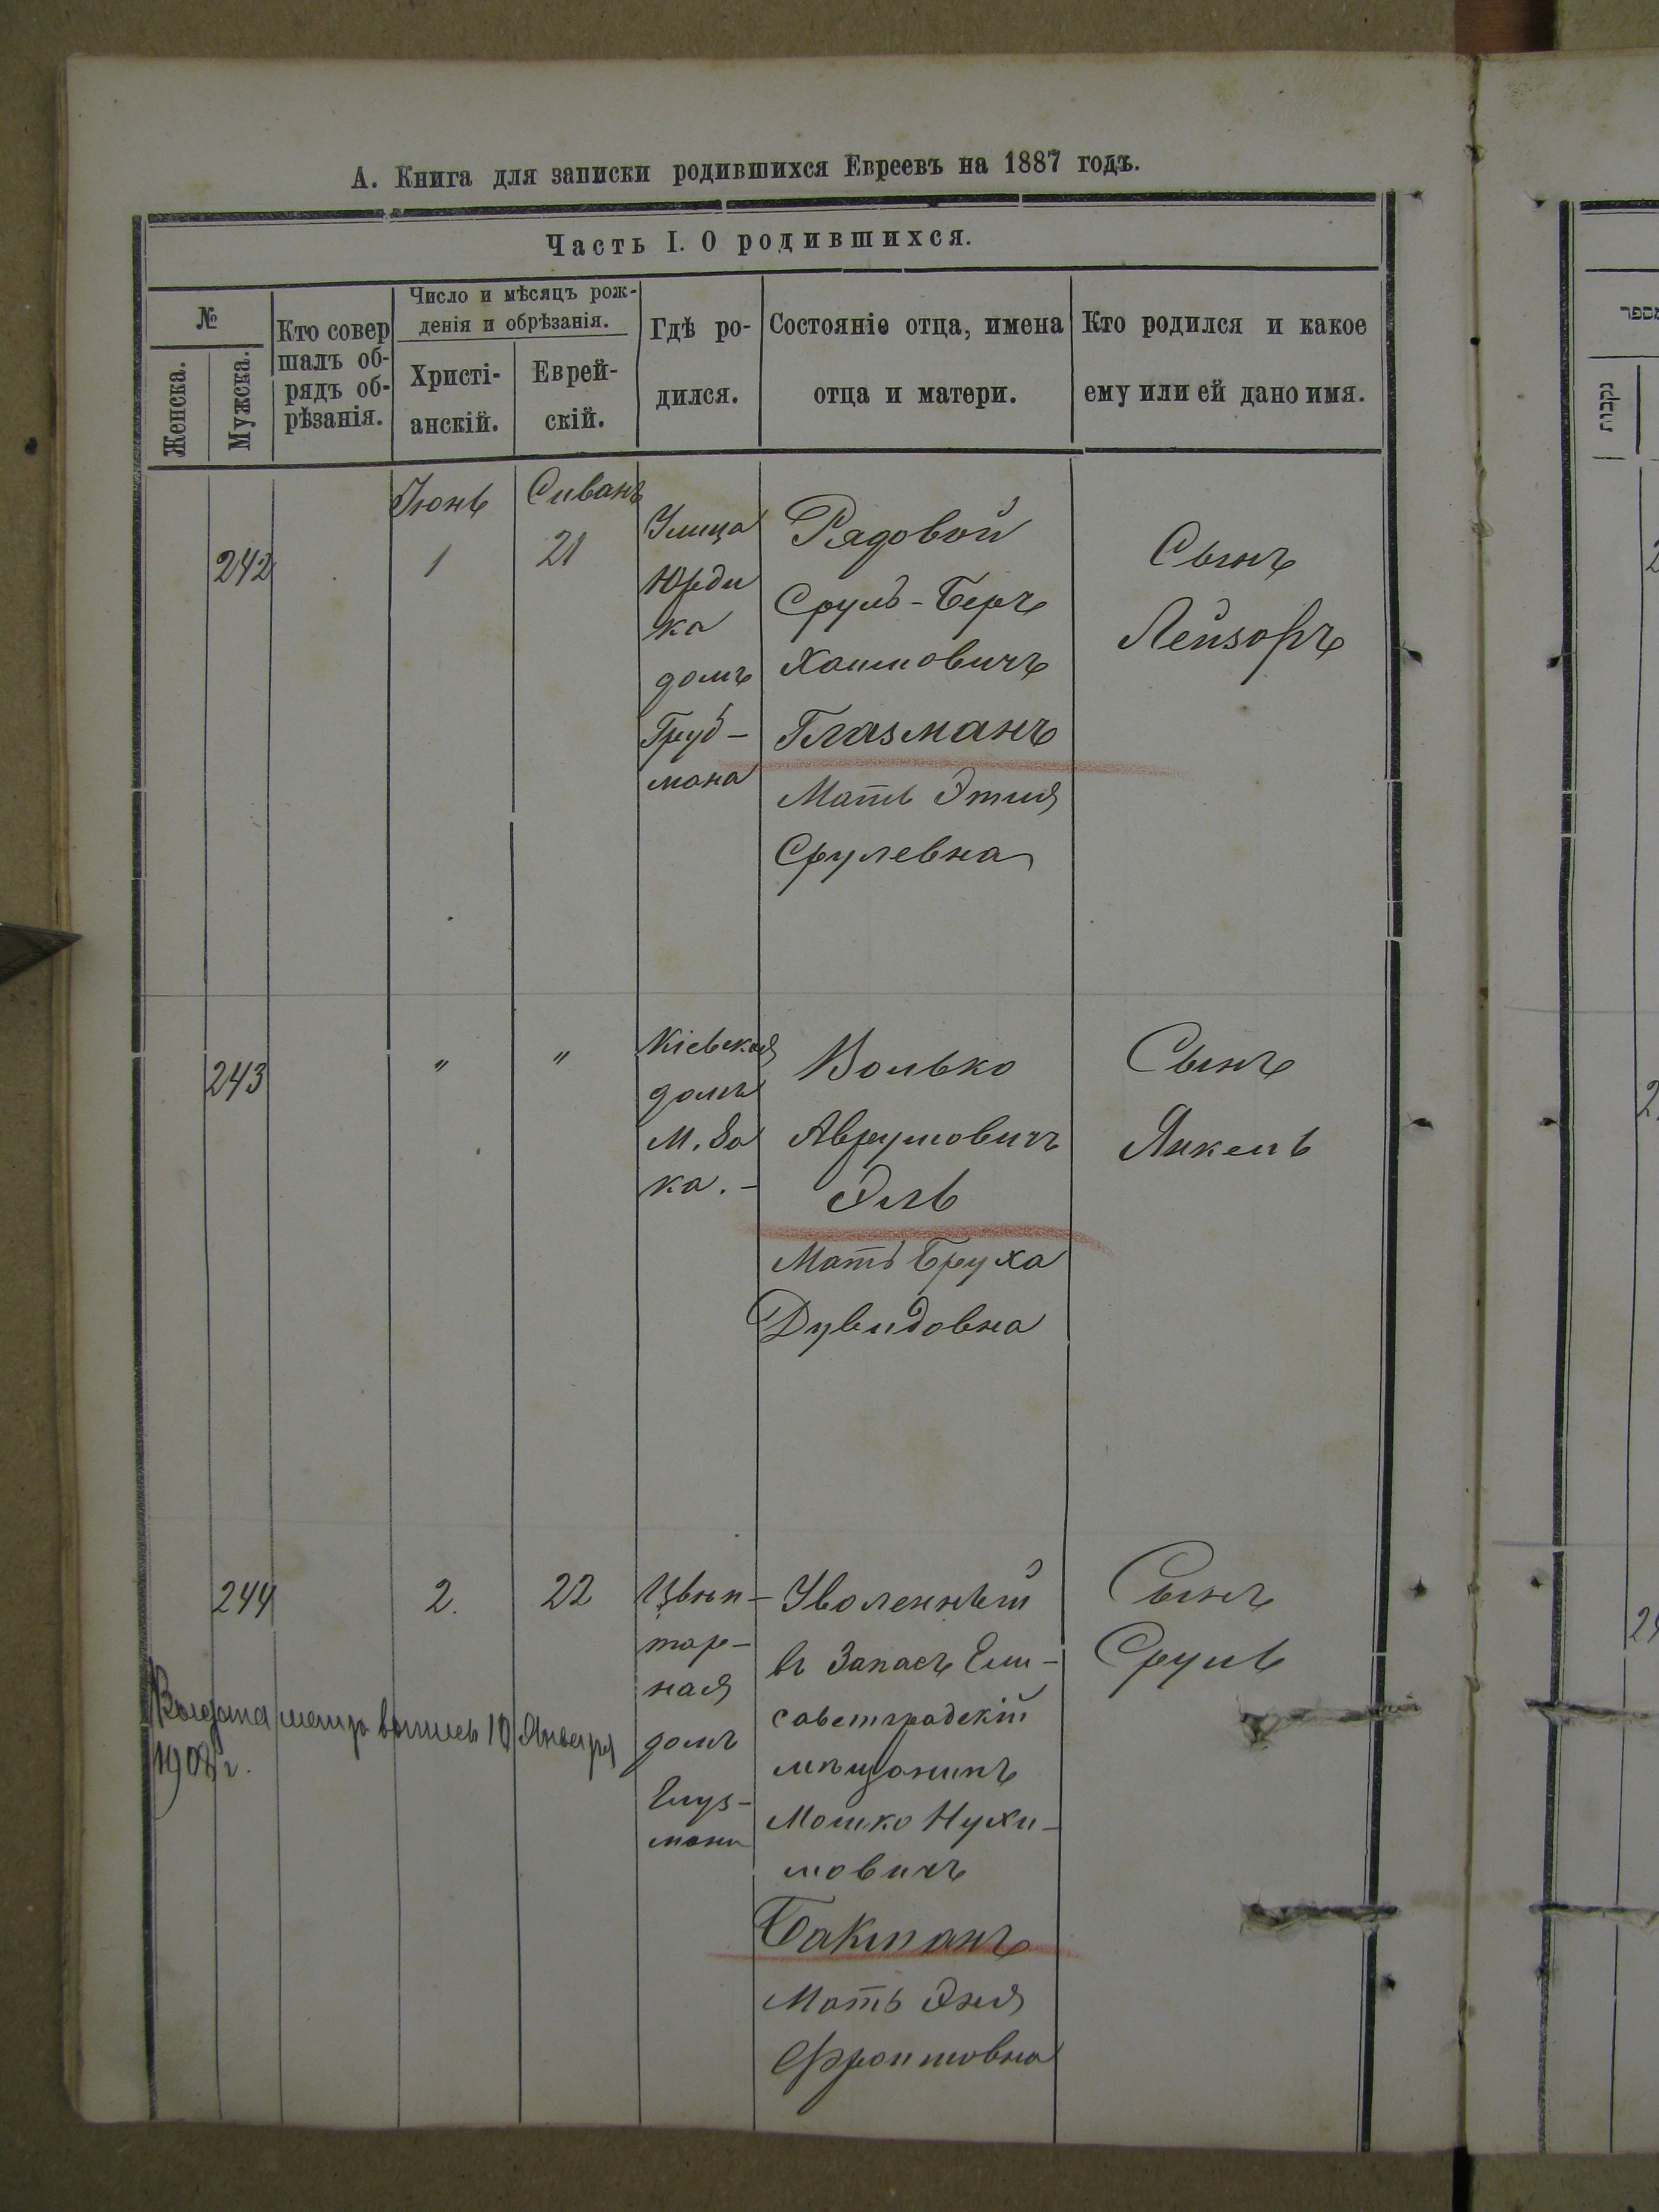 А. Книга для записки родившихся Евреевъ на 1887 годъ.
Часть I. О родившихся.
№
Женска.
Мужска.
Кто совер
шалъ об-
рядъ об-
рѣзанія.
Число и мѣсяцъ рож-
денія и обрѣзанія.
Христі-
анскій.
Еврей-
скій.
Гдѣ ро-
дился.
Состояніе отца, имена
отца и матери.
Кто родился и какое
ему или ей дано имя.
242
Іюнь
1
Сиванъ
21
Улица
Юрди
ка
домъ
Груб-
мана
Рядовой
Сруль-Беръ
Хаимовичъ
Глазманъ
Мать Этия
Срулевна
Сынъ
Лейзоръ
243
"
"
Кіевская
домъ
М. За
ка.-
Волько
Аврумовичъ
Эль
Мать Бруха
Дувидовна
Сынъ
Янкель
244
2.
22
Цвин-
тар-
ная
домъ
Глуз-
мана
Уволенный
въ Запасъ Ели-
саветградскій
мѣщанинъ
Мошко Нухи-
мовичъ
Бакманъ
Мать Эня
Фроимовна
Сынъ
Сруль
Выдана метр. выпись 10 Января
1908 г.
מספר
נקבות